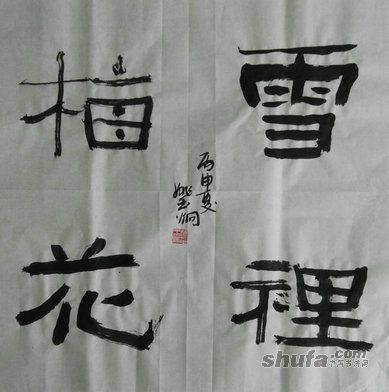 雪裡
梅花
丙申夏
shufa.com